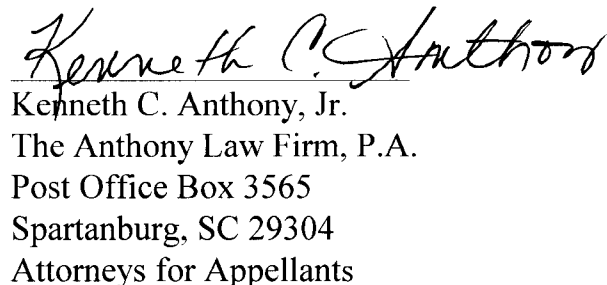 Kenneth C. Anthony
Kenneth C. Anthony, Jr.
The Anthony Law Firm, P.A.
Post Office Box 3565
Spartanburg, SC 29304
Attorneys for Appellants